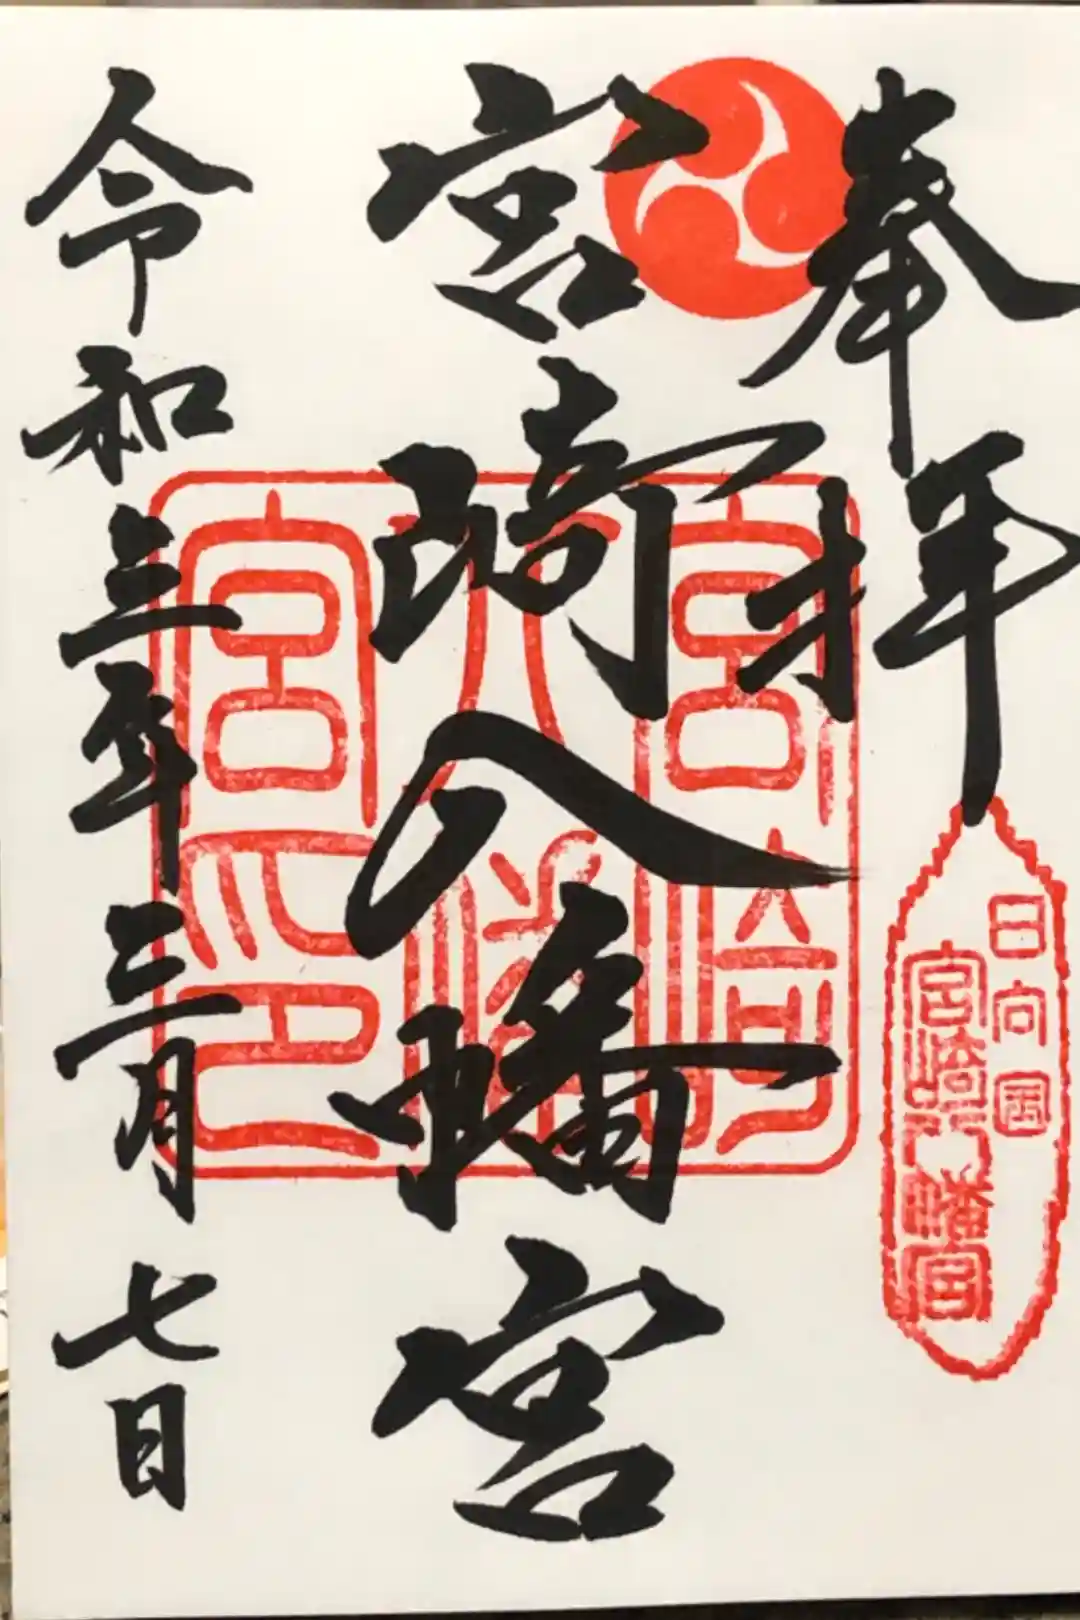 奉拝
宮崎八幡宮
令和三年三月七日
宮崎
八幡
宮印
日向国
宮崎八幡宮